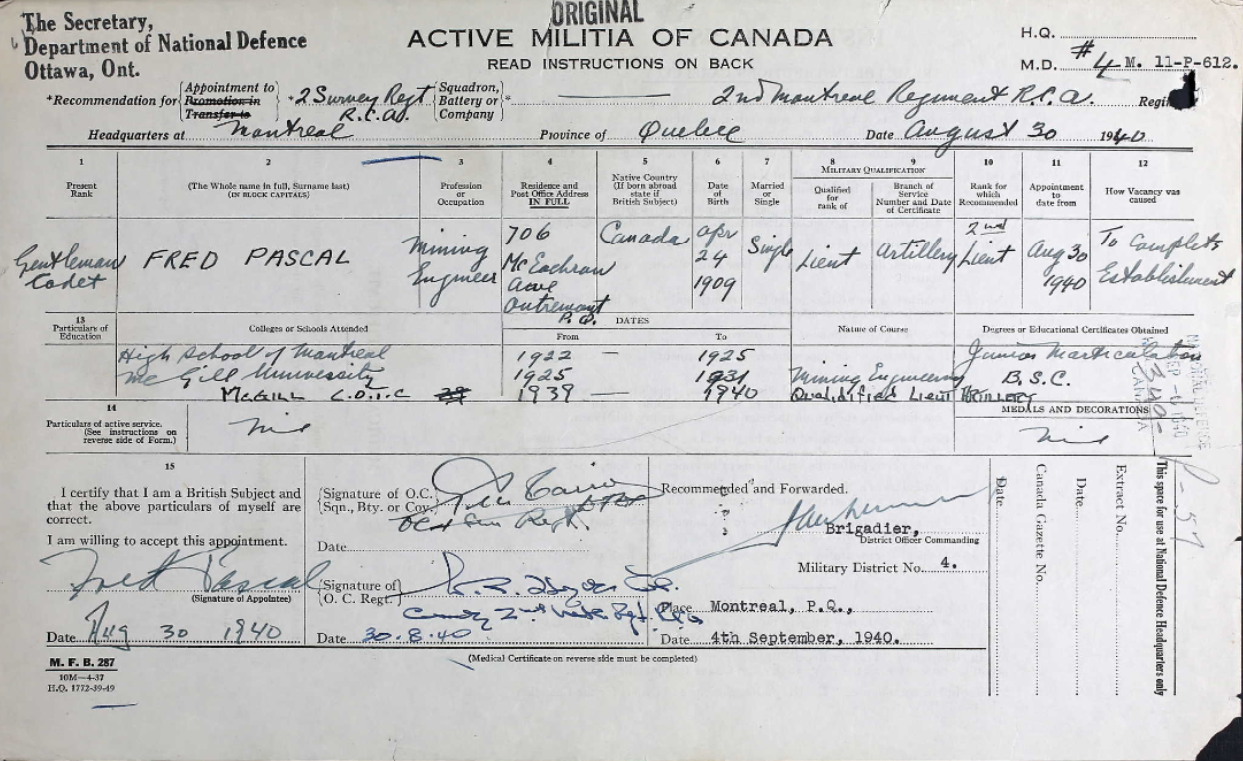 ORIGINAL
The Secretary,
Department of National Defence
Ottawa, Ont.
ACTIVE MILITIA OF CANADA
READ INSTRUCTIONS ON BACK
H.Q.
M.D. #4 M. 11-P-612.
*Recommendation for
Appointment to
Promotion in
Transfer to
*2 Survey Regt
R.C.A.
Squadron,
Battery or
Company
* 2nd Montreal Regiment R.C.A.
Headquarters at Montreal Province of Quebec Date August 30 1940
1
Present
Rank
2
(The Whole name in full, Surname last)
(IN BLOCK CAPITALS)
3
Profession
or
Occupation
4
Residence and
Post Office Address
IN FULL
5
Native Country
(If born abroad
state if
British Subject)
6
Date
of
Birth
7
Married
or
Single
MILITARY QUALIFICATION
8
Qualified
for
rank of
9
Branch of
Service
Number and Date
of Certificate
10
Rank for
which
Recommended
11
Appointment
to
date from
12
How Vacancy was
caused
Gentleman
Cadet
FRED PASCAL
Mining
Engineer
706
McEachran
Ave
Outremont
P.Q.
Canada
Apr
24
1909
Single
Lieut
Artillery
2nd
Lieut
Aug 30
1940
To Complete
Establishment
13
Particulars of
Education
Colleges or Schools Attended
DATES
From To
Nature of Course
Degrees or Educational Certificates Obtained
High School of Montreal 1922 — 1925 Junior Matriculation
McGill University 1925 1931 Mining Engineering B.S.C.
McGILL C.O.T.C 1939 — 1940 Qualidified Lieut ARTILLERY
14
Particulars of active service.
(See instructions on
reverse side of Form.)
Nil
MEDALS AND DECORATIONS
Nil
15
I certify that I am a British Subject and
that the above particulars of myself are
correct.
I am willing to accept this appointment.
Fred Pascal
(Signature of Appointee)
Date Aug 30 1940
Signature of O.C.
Sqn., Bty. or Coy.
Date
Signature of
O. C. Regt.
Date 30.8.40
Recommended and Forwarded.
Brigadier,
District Officer Commanding
Military District No. 4.
Place Montreal, P.Q.,
Date 4th September, 1940.
(Medical Certificate on reverse side must be completed)
Date
Canada Gazette No.
Date
Extract No.
This spare for use at National Defence Headquarters only
M. F. B. 287
10M—4-37
H.Q. 1772-39-49